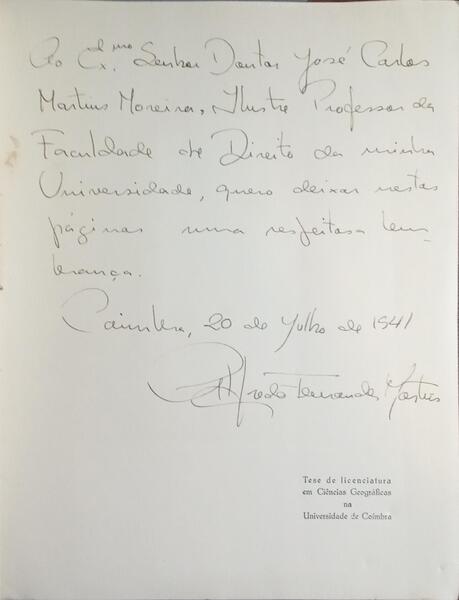 Ao Ex.mo Senhor Doutor José Carlos
Martins Moreira, Ilustre Professor da
Faculdade de Direito da minha
Universidade, quero deixar nestas
páginas uma respeitosa lem-
brança.
Coimbra, 20 de Julho de 1941
Alfredo Fernandes Martins
Tese de licenciatura
em Ciências Geográficas
na
Universidade de Coimbra